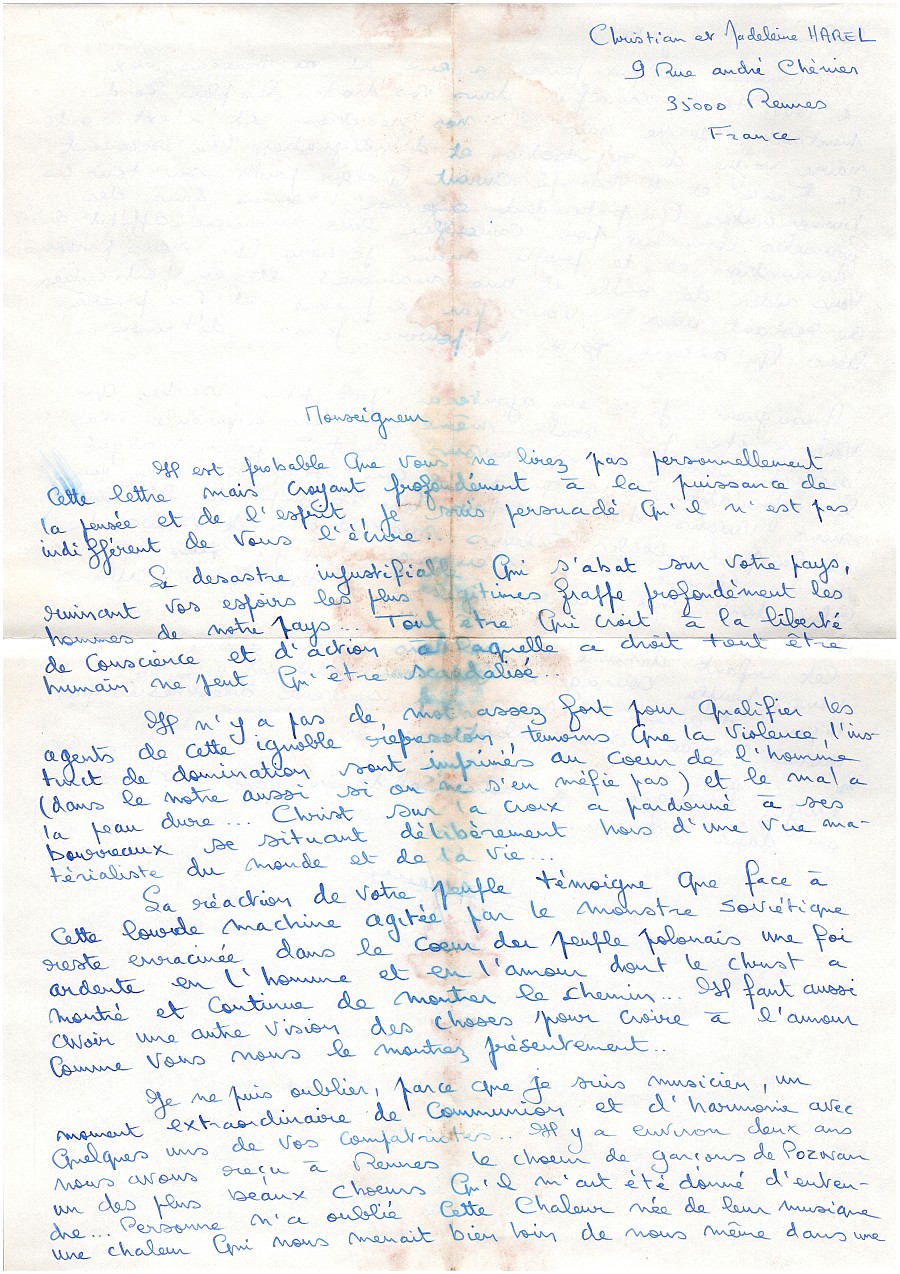 Christian et Madeleine HAREL
9 Rue andré Chénier
35000 Rennes
France
Monseigneur
Il est probable que vous ne lirez pas personnellement
cette lettre mais croyant profondément à la puissance de
la pensée et de l'esprit, je suis persuadé qu'il n'est pas
indifférent de vous l'écrire..
Le desastre injustifiable qui s'abat sur votre pays,
ruinant vos espoirs les plus légitimes frappe profondément les
hommes de notre pays... Tout être qui croit à la liberté
de conscience et d'action à laquelle a droit tout être
humain ne peut qu'être scandalisé...
Il n'y a pas de mot assez fort pour qualifier les
agents de cette ignoble repression, temoins que la violence, l'ins
tinct de domination sont imprimés au coeur de l'homme
(dans le notre aussi si on ne s'en méfie pas) et le mal a
la peau dure... Christ sur la croix a pardonné à ses
bourreaux se situant délibèrement hors d'une vue ma-
térialiste du monde et de la vie...
La réaction de votre peuple témoigne que face à
cette lourde machine agitée par le monstre soviétique
reste enracinée dans le coeur du peuple polonais une foi
ardente en l'homme et en l'amour dont le christ a
montré et continue de montrer le chemin... Il faut aussi
avoir une autre vision des choses pour croire à l'amour
comme vous nous le montrez présentement..
Je ne puis oublier, parce que je suis musicien, un
moment extraordinaire de communion et d'harmonie avec
quelques uns de vos compatriotes.. Il y a environ deux ans
nous avons reçu à Rennes le choeur de garçons de Poznan
un des plus beaux choeurs qu'il m'ait été donné d'enten-
dre... Personne n'a oublié cette chaleur née de leur musique
une chaleur qui nous menait bien loin de nous même dans une